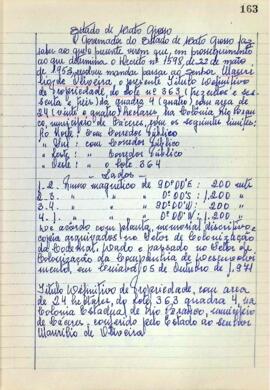 163
Estado de Mato Grosso
O Governador do Estado de Mato Grosso faz
saber aos que o presente virem que, em prosseguimento
ao que determina o Decreto nº 1598, de 22 de maio
de 1953, resolveu mandar passar ao Senhor Mauri-
lio de Oliveira, o presente Título Definitivo
de Propriedade, do lote nº 363 (trezentos e ses-
senta e três) da quadra 4 (quatro) com area de
24 (vinte e quatro) hectares na Colonia Rio Bran-
co, município de Cáceres, com os seguintes limites:
Ao Norte: Com Corredor Público
" Sul: com Corredor Público
" Leste: " Corredor Público
" Oeste: " o lote 364
— Lados —
1-2. Rumo magnetico de 90º00'E: 200 mts
2-3. " " " 0º00'S: 1.200 "
3-4. " " " 90º00'W: 200 "
4-1. " " " 0º00'N: 1.200 "
De acordo com planta, memorial discritivo e
copia arquivados no Setor de Colonização
da Codemat. Dado e passado no Setor de
Colonização da Companhia de Desenvolvi-
mento, em Cuiabá, 05 de Outubro de 1.971
Titulo Definitivo de Propriedade, com area
de 24 hectares, do lote 363 quadra 4, na
Colonia Estadual de Rio Branco, município
de Cáceres, conferido pelo Estado ao senhor
Maurilio de Oliveira